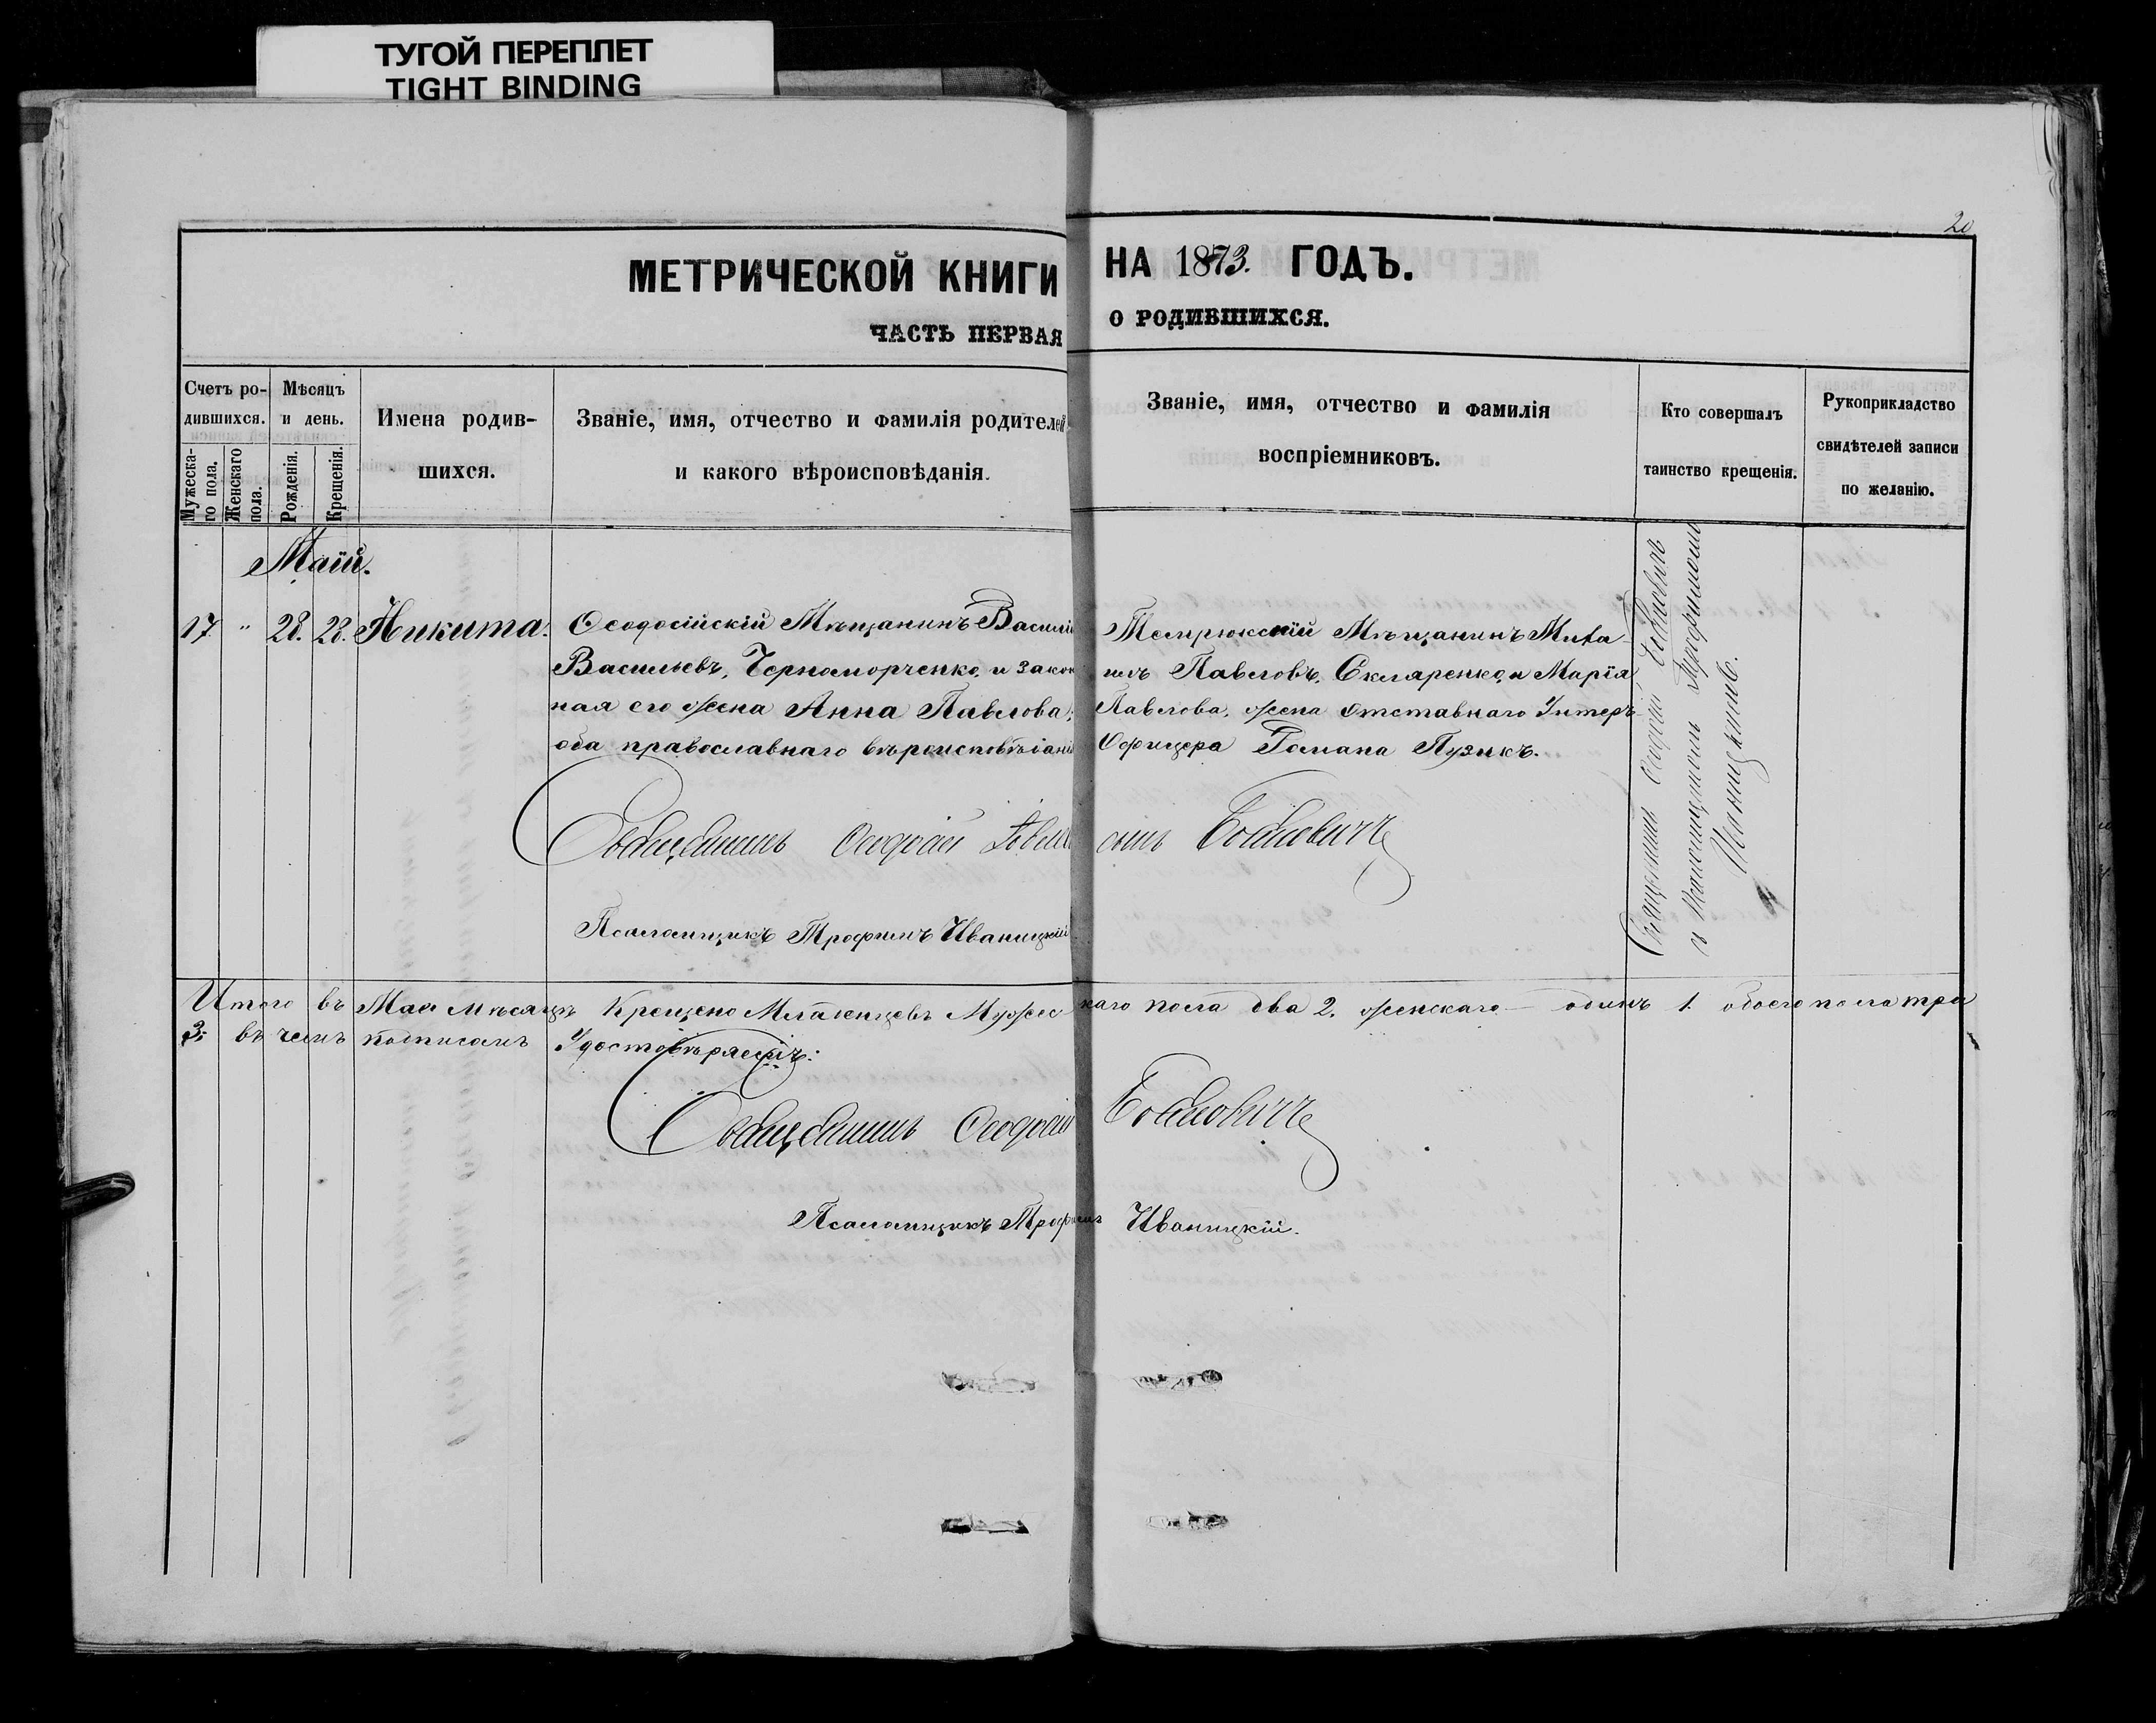 ТУГОЙ ПЕРЕПЛЕТ
TIGHT BINDING
20
МЕТРИЧЕСКОЙ КНИГИ НА 1873. ГОДЪ.
ЧАСТЬ ПЕРВАЯ О РОДИВШИХСЯ.
Счетъ ро-
дившихся.
Мужеска-
го пола.
Женскаго
пола.
Мѣсяцъ
и день.
Рожденія.
Крещенія.
Имена родив-
шихся.
Званіе, имя, отчество и фамилія родителей
и какого вѣроисповѣданія.
Званіе, имя, отчество и фамилія
воспріемниковъ.
Кто совершалъ
таинство крещенія.
Рукоприкладство
свидѣтелей записи
по желанію.
Маій.
17. " 28. 28. Никита.
Ѳеодосійскій Мѣщанинъ Василій
Васильевъ, Черноморченко, и закон
ная его жена Анна Павлова;
оба православнаго вѣроисповѣданія
Темрюкскій Мѣщанинъ Миха-
илъ Павловъ, Скляренко, и Марія
Павлова, жена отставнаго Унтеръ-
Офицера Романа Пузикъ.
Священникъ Ѳеодосій
и Псаломщикомъ Трофимомъ
Иваницкимъ.
Священникъ Ѳеодосій
Псаломщикъ Трофимъ Иваницкій
Итого въ Маѣ мѣсяцѣ Крещено Младенцевъ Мужескаго пола два 2. женскаго — одинъ 1. обоего пола три
3. въ чемъ подписомъ Удостовѣряемъ:
Священникъ Ѳеодосій
Псаломщикъ Трофимъ Иваницкій.